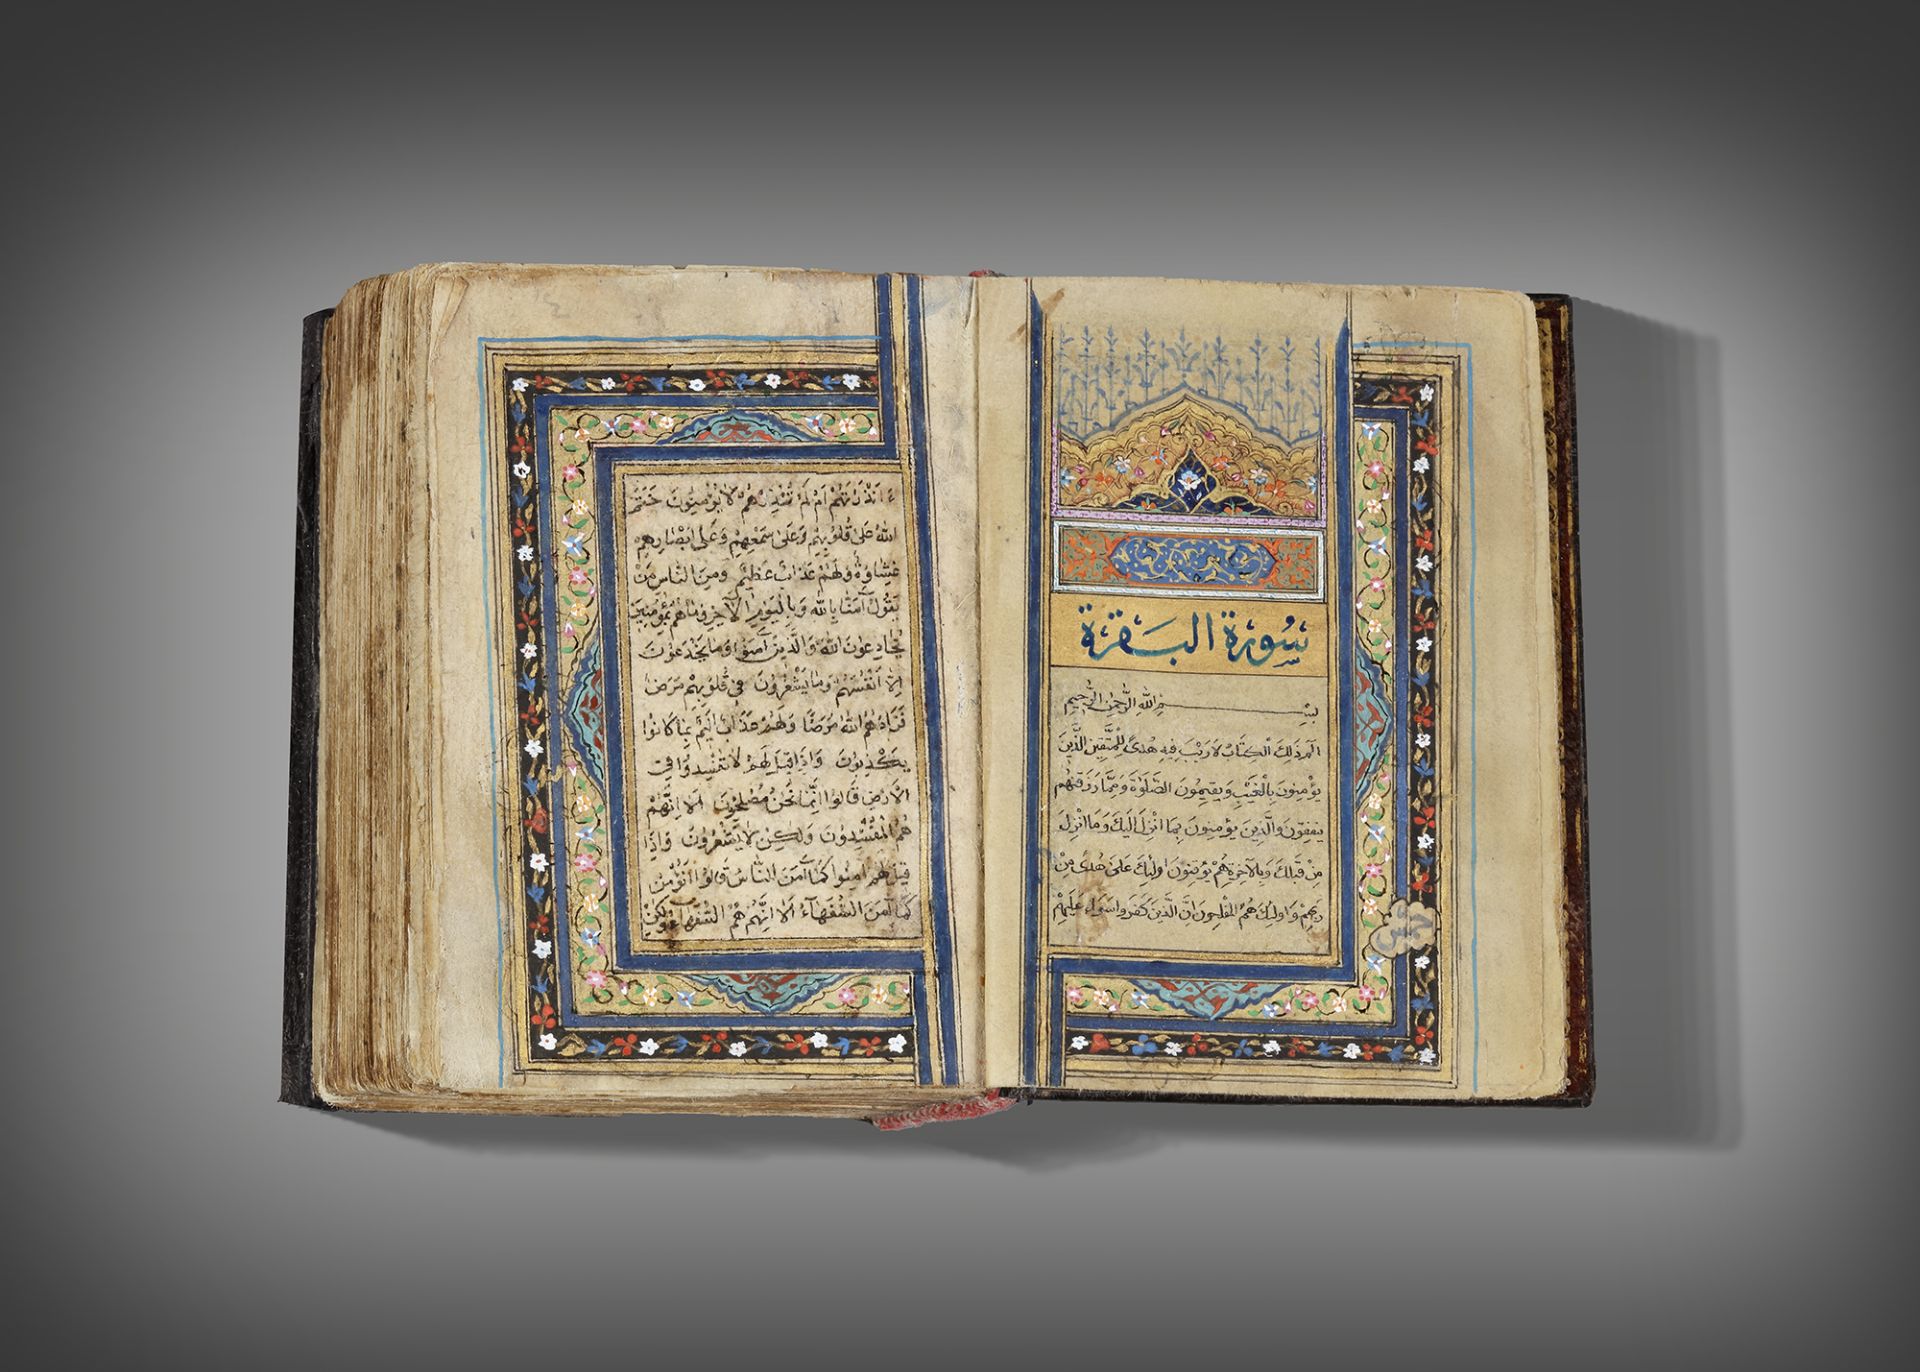 سُورَة البَقَرَة
بِسْمِ اللهِ الرَّحْمٰنِ الرَّحِيمِ
الم ذلِكَ الْكِتَابُ لَا رَيْبَ فِيهِ هُدًى لِلْمُتَّقِينَ الَّذِينَ
يُؤْمِنُونَ بِالْغَيْبِ وَيُقِيمُونَ الصَّلَوةَ وَمِمَّا رَزَقْنٰهُمْ
يُنْفِقُونَ وَالَّذِينَ يُؤْمِنُونَ بِمَا اُنْزِلَ اِلَيْكَ وَمَا اُنْزِلَ
مِنْ قَبْلِكَ وَبِالْآخِرَةِ هُمْ يُوقِنُونَ اُولٰئِكَ عَلىٰ هُدًى مِنْ
رَبِّهِمْ وَاُولٰئِكَ هُمُ الْمُفْلِحُونَ اِنَّ الَّذِينَ كَفَرُوا سَوَاءٌ عَلَيْهِمْ
ءَاَنْذَرْتَهُمْ اَمْ لَمْ تُنْذِرْهُمْ لَا يُؤْمِنُونَ خَتَمَ
اللهُ عَلىٰ قُلُوبِهِمْ وَعَلىٰ سَمْعِهِمْ وَعَلىٰ اَبْصَارِهِمْ
غِشَاوَةٌ وَلَهُمْ عَذَابٌ عَظِيمٌ وَمِنَ النَّاسِ مَنْ
يَقُولُ آمَنَّا بِاللهِ وَبِالْيَوْمِ الْآخِرِ وَمَا هُمْ بِمُؤْمِنِينَ
يُخَادِعُونَ اللهَ وَالَّذِينَ آمَنُوا وَمَا يَخْدَعُونَ
اِلَّا اَنْفُسَهُمْ وَمَا يَشْعُرُونَ فِي قُلُوبِهِمْ مَرَضٌ
فَزَادَهُمُ اللهُ مَرَضًا وَلَهُمْ عَذَابٌ اَلِيمٌ بِمَا كَانُوا
يَكْذِبُونَ وَاِذَا قِيلَ لَهُمْ لَا تُفْسِدُوا فِي
الْاَرْضِ قَالُوا اِنَّمَا نَحْنُ مُصْلِحُونَ اَلَا اِنَّهُمْ
هُمُ الْمُفْسِدُونَ وَلٰكِنْ لَا يَشْعُرُونَ وَاِذَا
قِيلَ لَهُمْ آمِنُوا كَمَا آمَنَ النَّاسُ قَالُوا اَنُؤْمِنُ
كَمَا آمَنَ السُّفَهَاءُ اَلَا اِنَّهُمْ هُمُ السُّفَهَاءُ وَلٰكِنْ